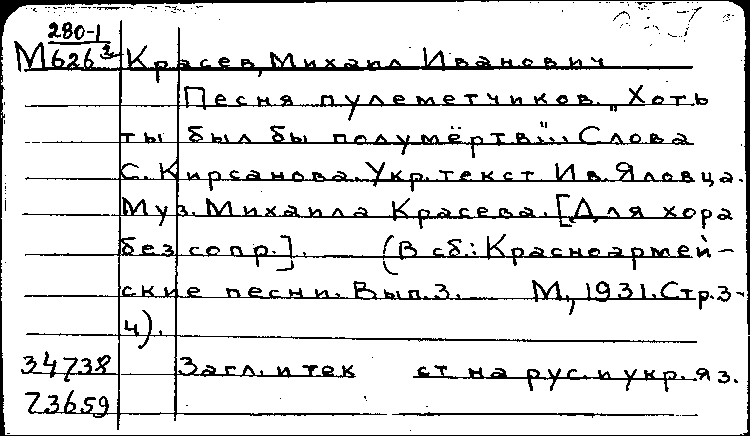 280-1
М626³ Красев, Михаил Иванович
Песня пулеметчиков. „Хоть
ты был бы полумёртв"... Слова
С. Кирсанова. Укр. текст Ив. Яловца.
Муз. Михаила Красева. [Для хора
без сопр.]. (В сб.: Красноармей-
ские песни. Вып. 3. М., 1931. Стр. 3-
4).
34738 Загл. и тек ст на рус. и укр. яз.
73659